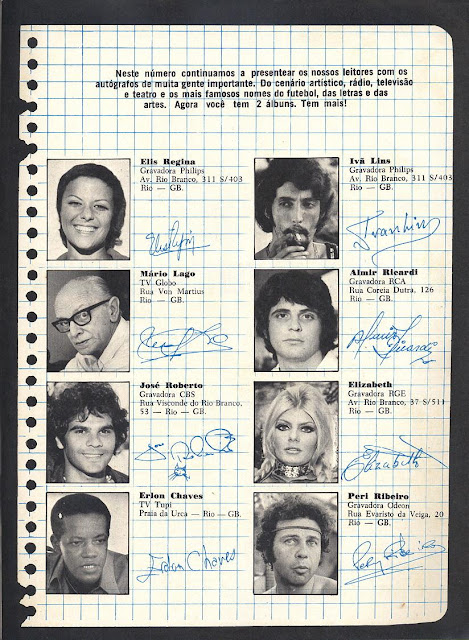 Neste número continuamos a presentear os nossos leitores com os
autógrafos de muita gente importante. Do cenário artístico, rádio, televisão
e teatro e os mais famosos nomes do futebol, das letras e das
artes. Agora você tem 2 álbuns. Tem mais!
Elis Regina
Gravadora Philips
Av. Rio Branco, 311 S/403
Rio — GB.
Elis Regina
Ivã Lins
Gravadora Philips
Av. Rio Branco, 311 S/403
Rio — GB.
Ivan Lins
Mário Lago
TV Globo
Rua Von Martius
Rio — GB.
Almir Ricardi
Gravadora RCA
Rua Correia Dutra, 126
Rio — GB.
José Roberto
Gravadora CBS
Rua Visconde do Rio Branco,
53 — Rio — GB.
Elizabeth
Gravadora RGE
Av. Rio Branco, 37 S/511
Rio — GB.
Elizabeth
Erlon Chaves
TV Tupi
Praia da Urca — Rio — GB.
Erlon Chaves
Peri Ribeiro
Gravadora Odeon
Rua Evaristo da Veiga, 20
Rio — GB.
Pery Ribeiro